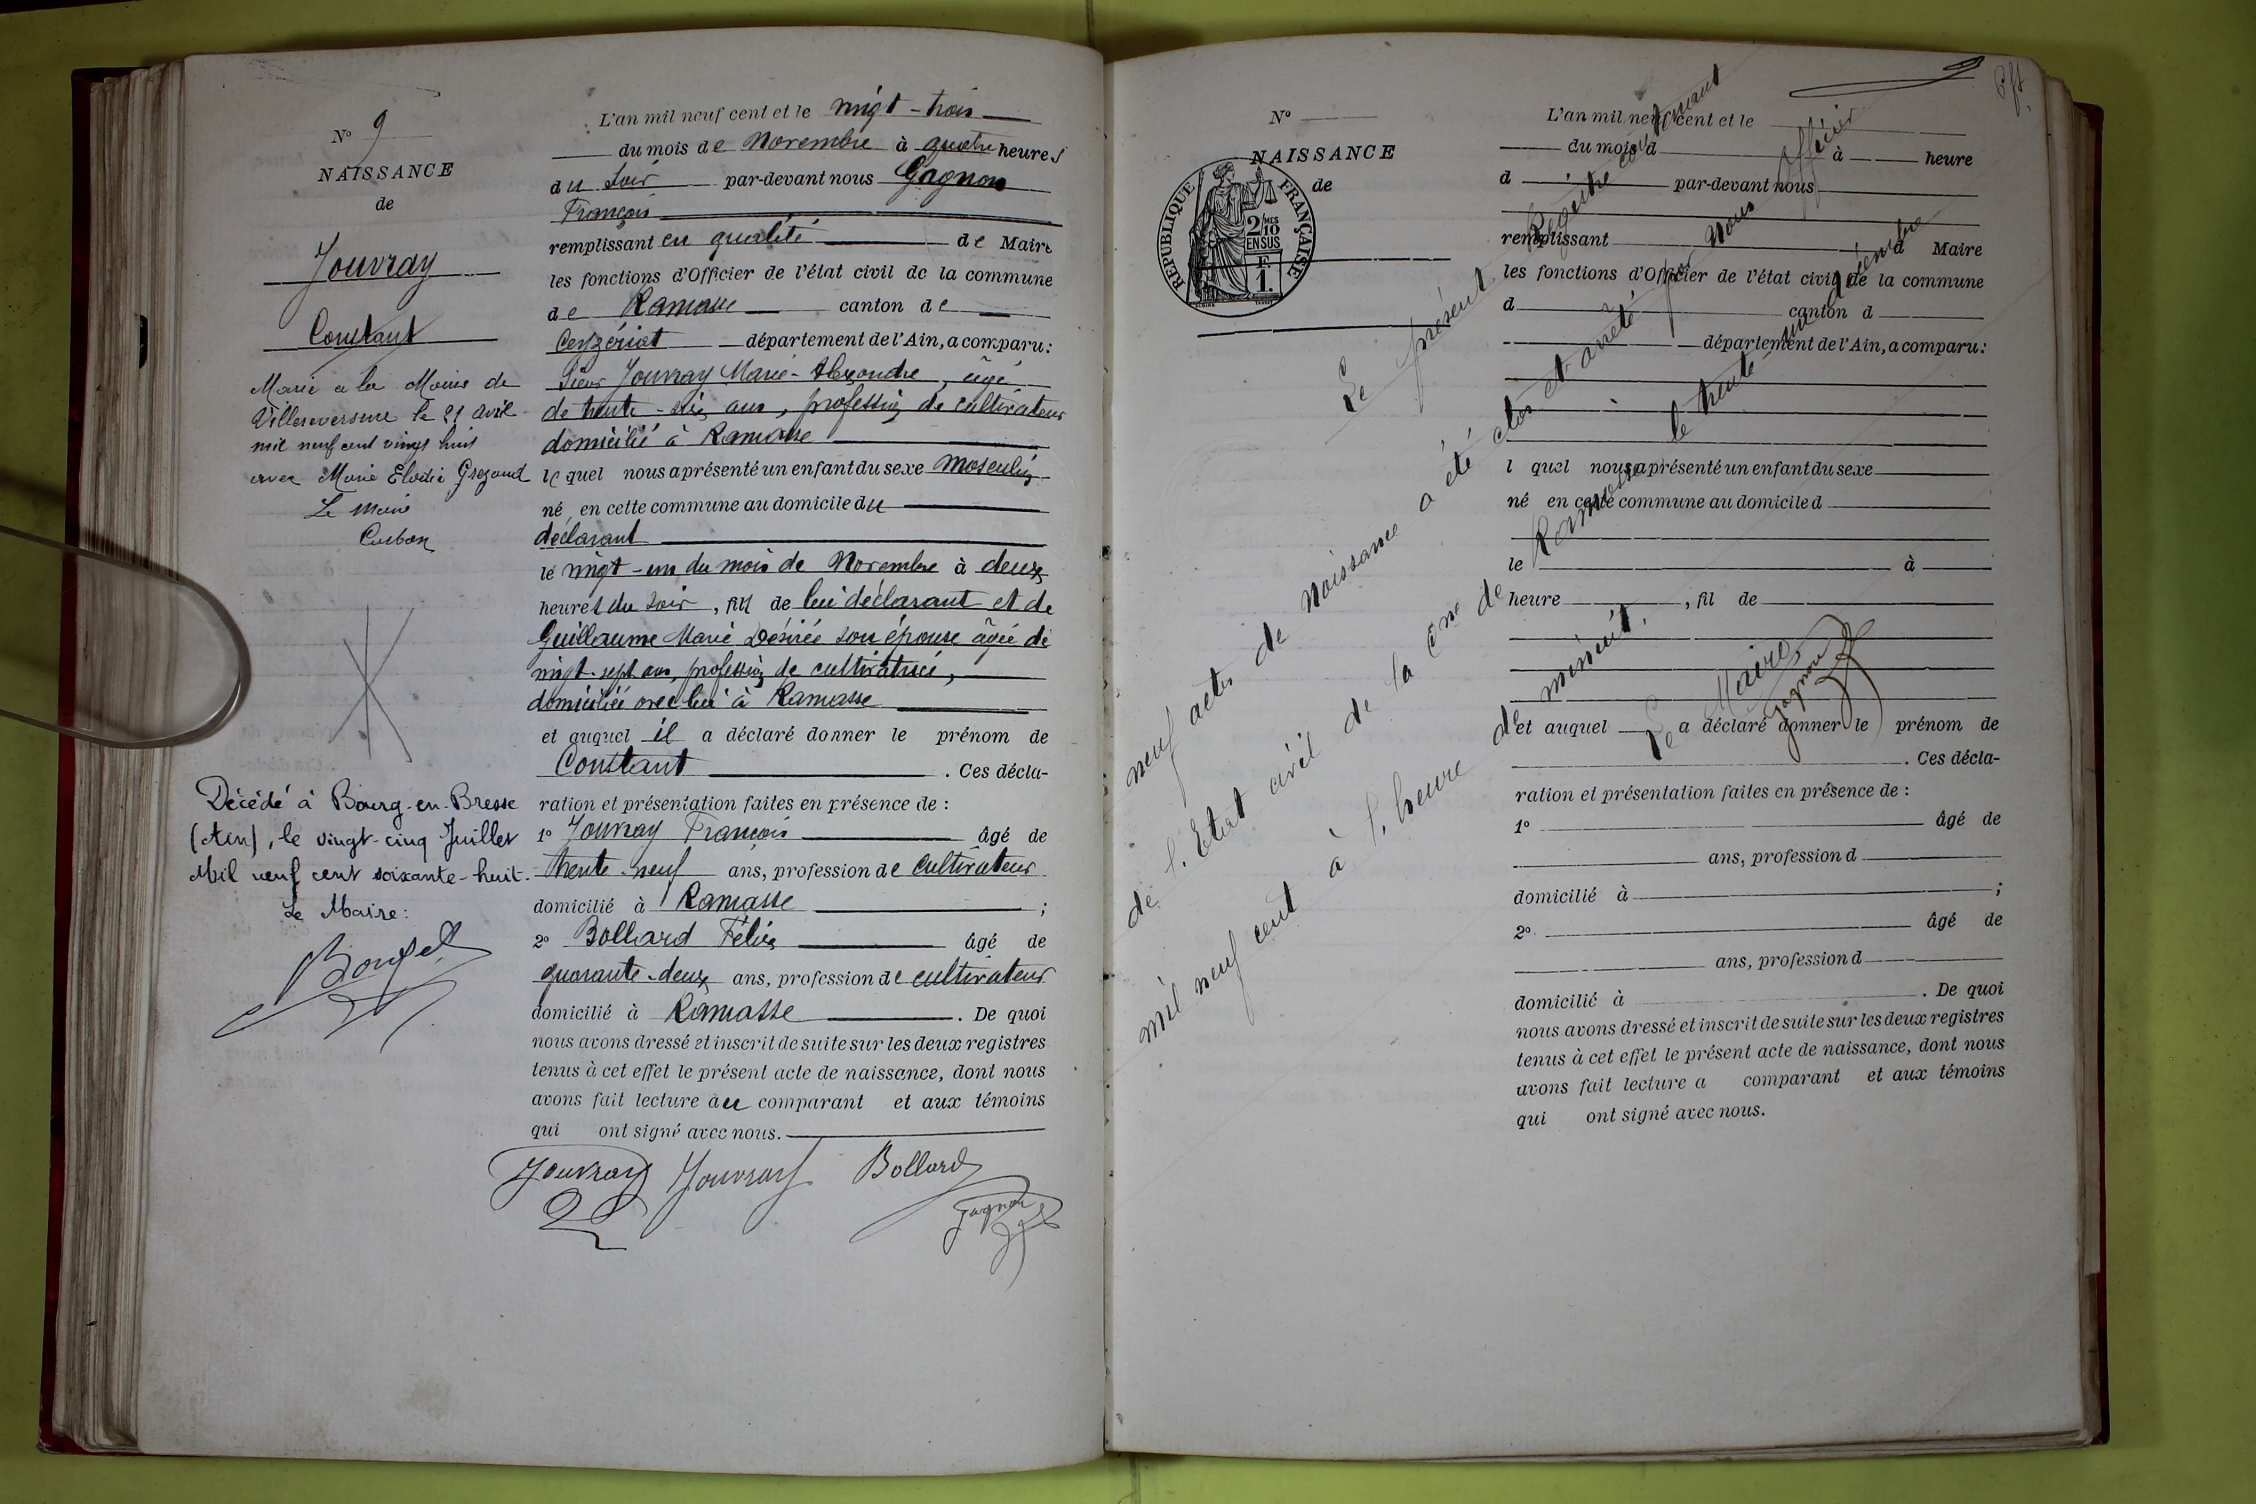 N° 9
NAISSANCE
de
Jouvray
Constant
Marié à la Mairie de
Villereversure le 21 avril
mil neuf cent vingt huit
avec Marie Elodie Grezaud
Le Maire
Décédé à Bourg-en-Bresse
(Ain), le vingt-cinq Juillet
Mil neuf cent soixante-huit.
Le Maire:
L'an mil neuf cent et le vingt-trois
du mois de Novembre à quatre heures
du soir par-devant nous Gagnon
François
remplissant en qualité de Maire
les fonctions d'Officier de l'état civil de la commune
de Ramasse canton de
Ceyzériat département de l'Ain, a comparu:
Sieur Jouvray Marie-Alexandre, âgé
de trente-six ans, profession de cultivateur
domicilié à Ramasse
lequel nous a présenté un enfant du sexe masculin
né en cette commune au domicile du
déclarant
le vingt-un du mois de Novembre à deux
heures du soir, fils de lui déclarant et de
Guillaume Marie Désirée son épouse âgée de
vingt-sept ans, profession de cultivatrice,
domiciliée avec lui à Ramasse
et auquel il a déclaré donner le prénom de
Constant. Ces décla-
ration et présentation faites en présence de :
1° Jouvray François âgé de
trente-neuf ans, profession de cultivateur
domicilié à Ramasse ;
2° Bollard Félix âgé de
quarante-deux ans, profession de cultivateur
domicilié à Ramasse. De quoi
nous avons dressé et inscrit de suite sur les deux registres
tenus à cet effet le présent acte de naissance, dont nous
avons fait lecture au comparant et aux témoins
qui ont signé avec nous.
Jouvray Jouvray Bollard
Gagnon
9
N°
NAISSANCE
de
RÉPUBLIQUE FRANÇAISE
2/10 MES
EN SUS
F
1.
L'an mil neuf cent et le
du mois d à heure
d par-devant nous
remplissant d Maire
les fonctions d'Officier de l'état civil de la commune
d canton d
département de l'Ain, a comparu:
l quel nous a présenté un enfant du sexe
né en cette commune au domicile d
le à
heure , fil de
et auquel a déclaré donner le prénom de
. Ces décla-
ration et présentation faites en présence de :
1° âgé de
ans, profession d
domicilié à ;
2° âgé de
ans, profession d
domicilié à . De quoi
nous avons dressé et inscrit de suite sur les deux registres
tenus à cet effet le présent acte de naissance, dont nous
avons fait lecture a comparant et aux témoins
qui ont signé avec nous.
Le présent Registre contenant
neuf actes de Naissance a été clos et arrêté par Nous Officier
de l'Etat civil de la Cne de Ramasse le trente un décembre
mil neuf cent à l'heure de minuit.
Le Maire,
Gagnon